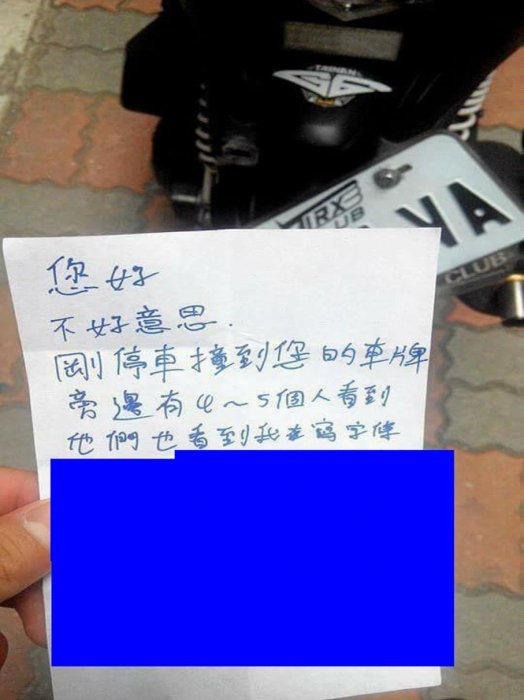 TAINAN
G6
TRXE
CLUB
VA
CLUB
您好
不好意思.
剛停車撞到您的車牌
旁邊有4～5個人看到
他們也看到我在寫字條